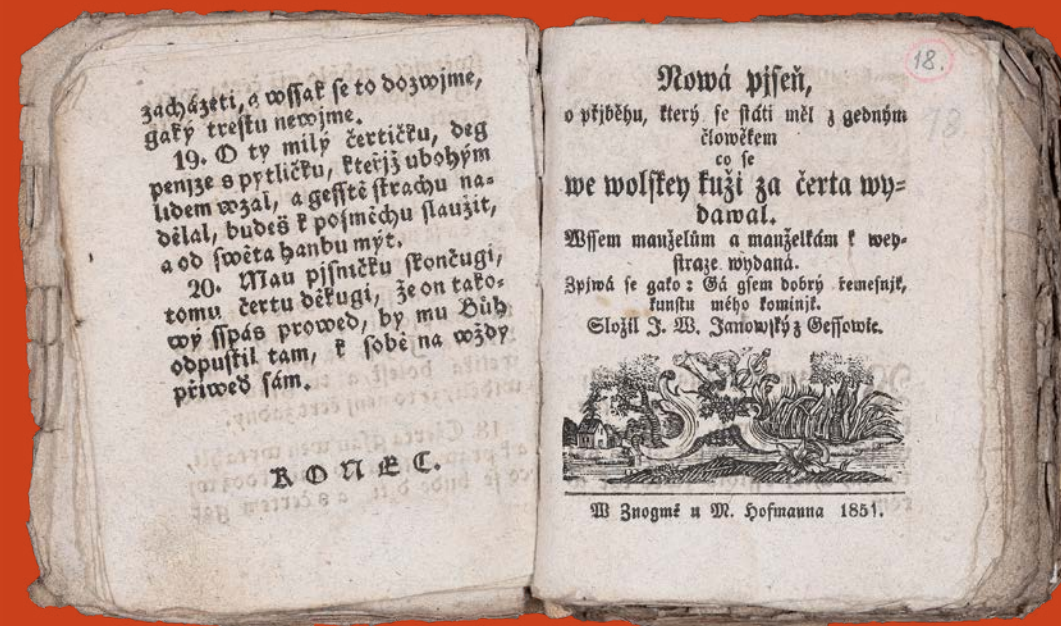 zacházeti, a wssak se to dozwjme,
gaký trestu newojme.
19. O ty milý čertičku, deg
penjze s pytličku, kteřjž ubohým
lidem wzal, a gesstě strachu na=
dělal, budeš k posměchu slaužit,
a od swěta hanbu mýt.
20. Mau pjsničku skončugi,
tomu čertu děkugi, že on tako=
wý sspás prowed, by mu Bůh
odpustil tam, k sobě na wždy
přiwed sám.
KONEC.
18.
18
Nowá pjseň,
o přjběhu, který se státi měl z gedným
člowěkem
co se
we wolskey kuži za čerta wy=
dawal.
Wssem manželům a manželkám k wey=
straze wydaná.
Zpjwá se gako: Gá gsem dobrý řemesnjk,
kunstu mého kominjk.
Složil J. W. Janowský z Gessowic.
W Znogmě u M. Hofmanna 1851.